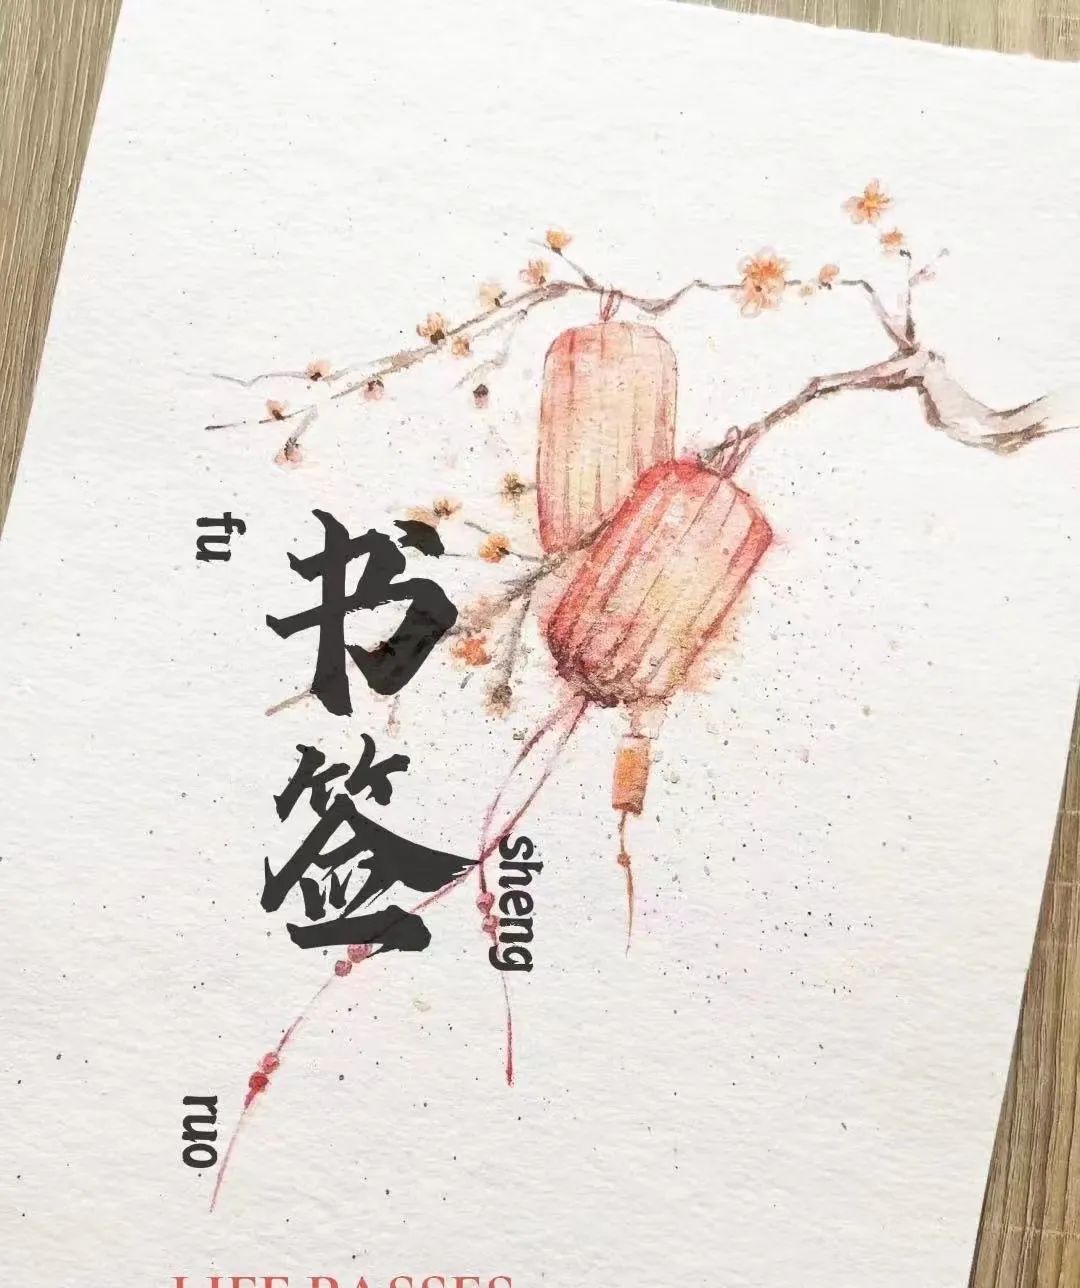 fu
书签
sheng
ruo
LIFE PASSES